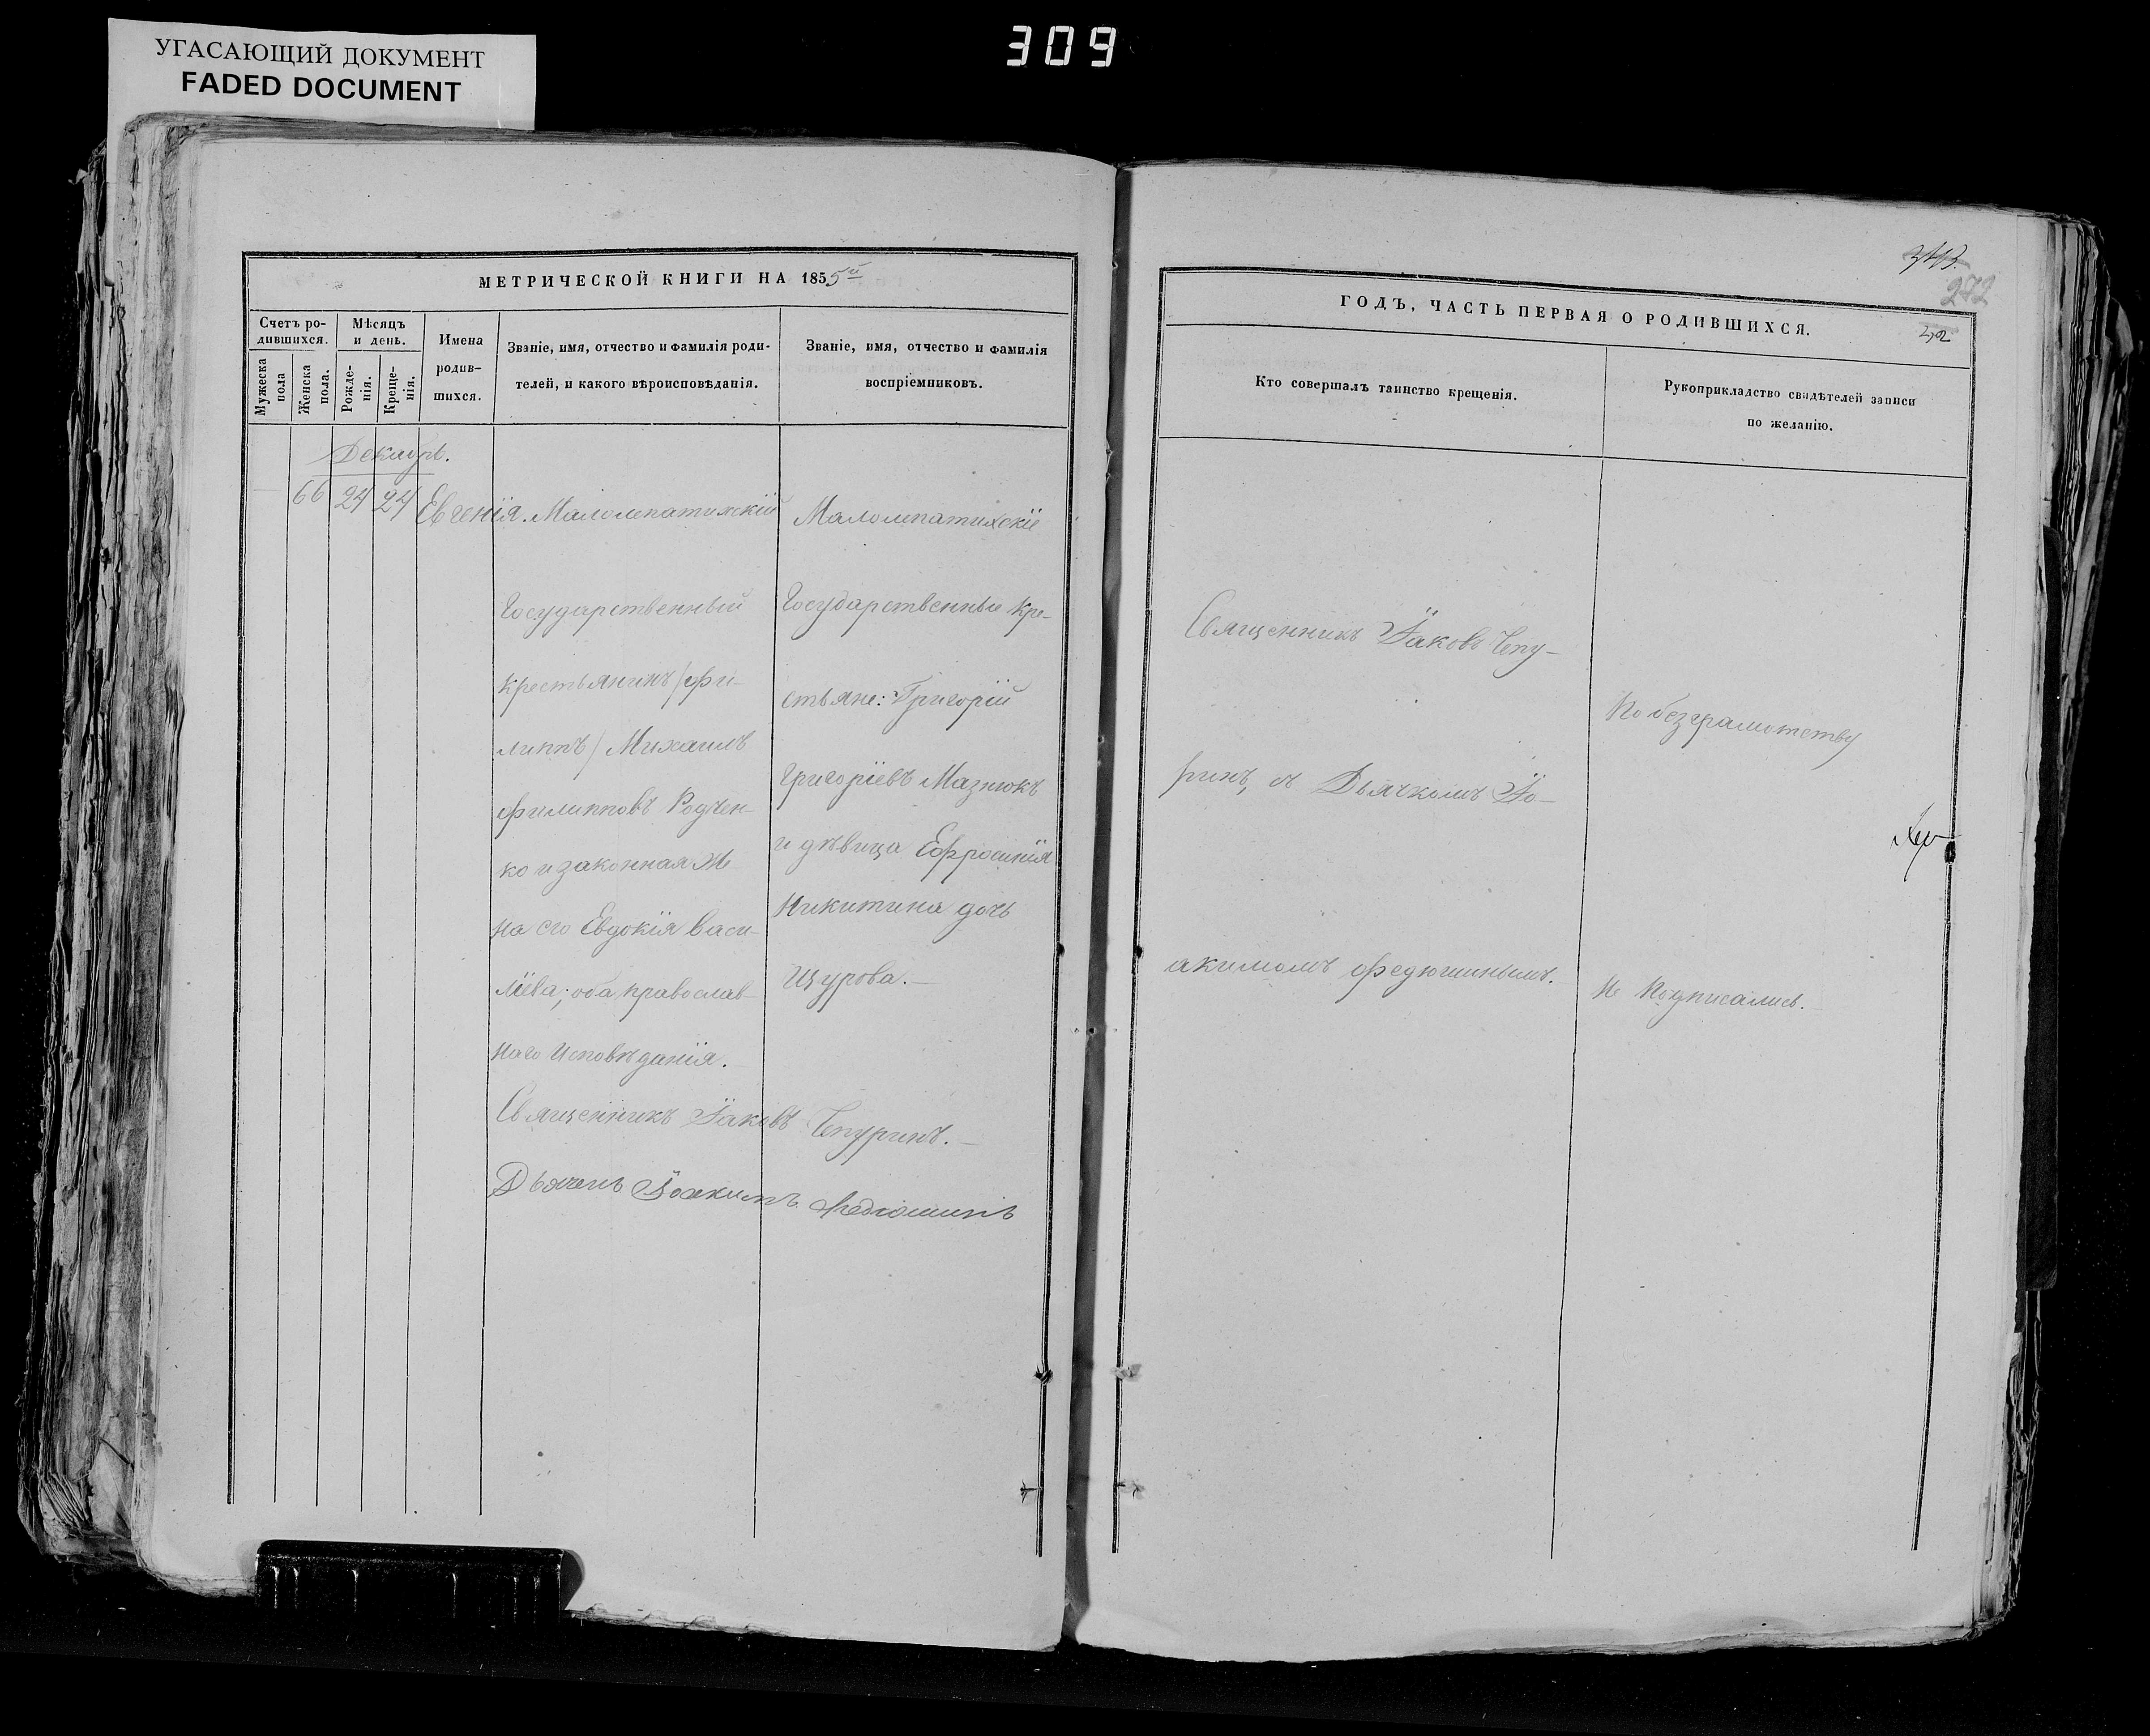 УГАСАЮЩИЙ ДОКУМЕНТ
FADED DOCUMENT
309
МЕТРИЧЕСКОЙ КНИГИ НА 1855й
Счетъ ро-
дившихся.
Мужеска
пола
Женска
пола.
Мѣсяцъ
и день.
Рожде-
нія.
Креще-
нія.
Имена
родив-
шихся.
Званіе, имя, отчество и фамилія роди-
телей, и какого вѣроисповѣданія.
Званіе, имя, отчество и фамилія
воспріемниковъ.
Декабрь.
66 24 24 Евгенія.
Малолепатихскій
Государственный
крестьянинъ /Фи-
липпъ/ Михаилъ
Филипповъ Родчен-
ко и законная же
на его Евдокія Васи-
лїева; оба православ-
наго Исповѣданія.
Малолепатихскіе
Государственные кре-
стьяне: Григорій
Григоріевъ Мазнюкъ
и дѣвица Ефросинія
Никитина дочь
Щурова.—
Священникъ Іаковъ Чепуринъ.—
Дьячекъ Іоакимъ Федюшинъ
ГОДЪ, ЧАСТЬ ПЕРВАЯ О РОДИВШИХСЯ.
272
Кто совершалъ таинство крещенія.
Рукоприкладство свидѣтелей записи
по желанію.
Священникъ Іаковъ Чепу-
ринъ, съ Дьячкомъ Іо-
акимомъ Федюшинымъ.
По безграмотству
не подписались.